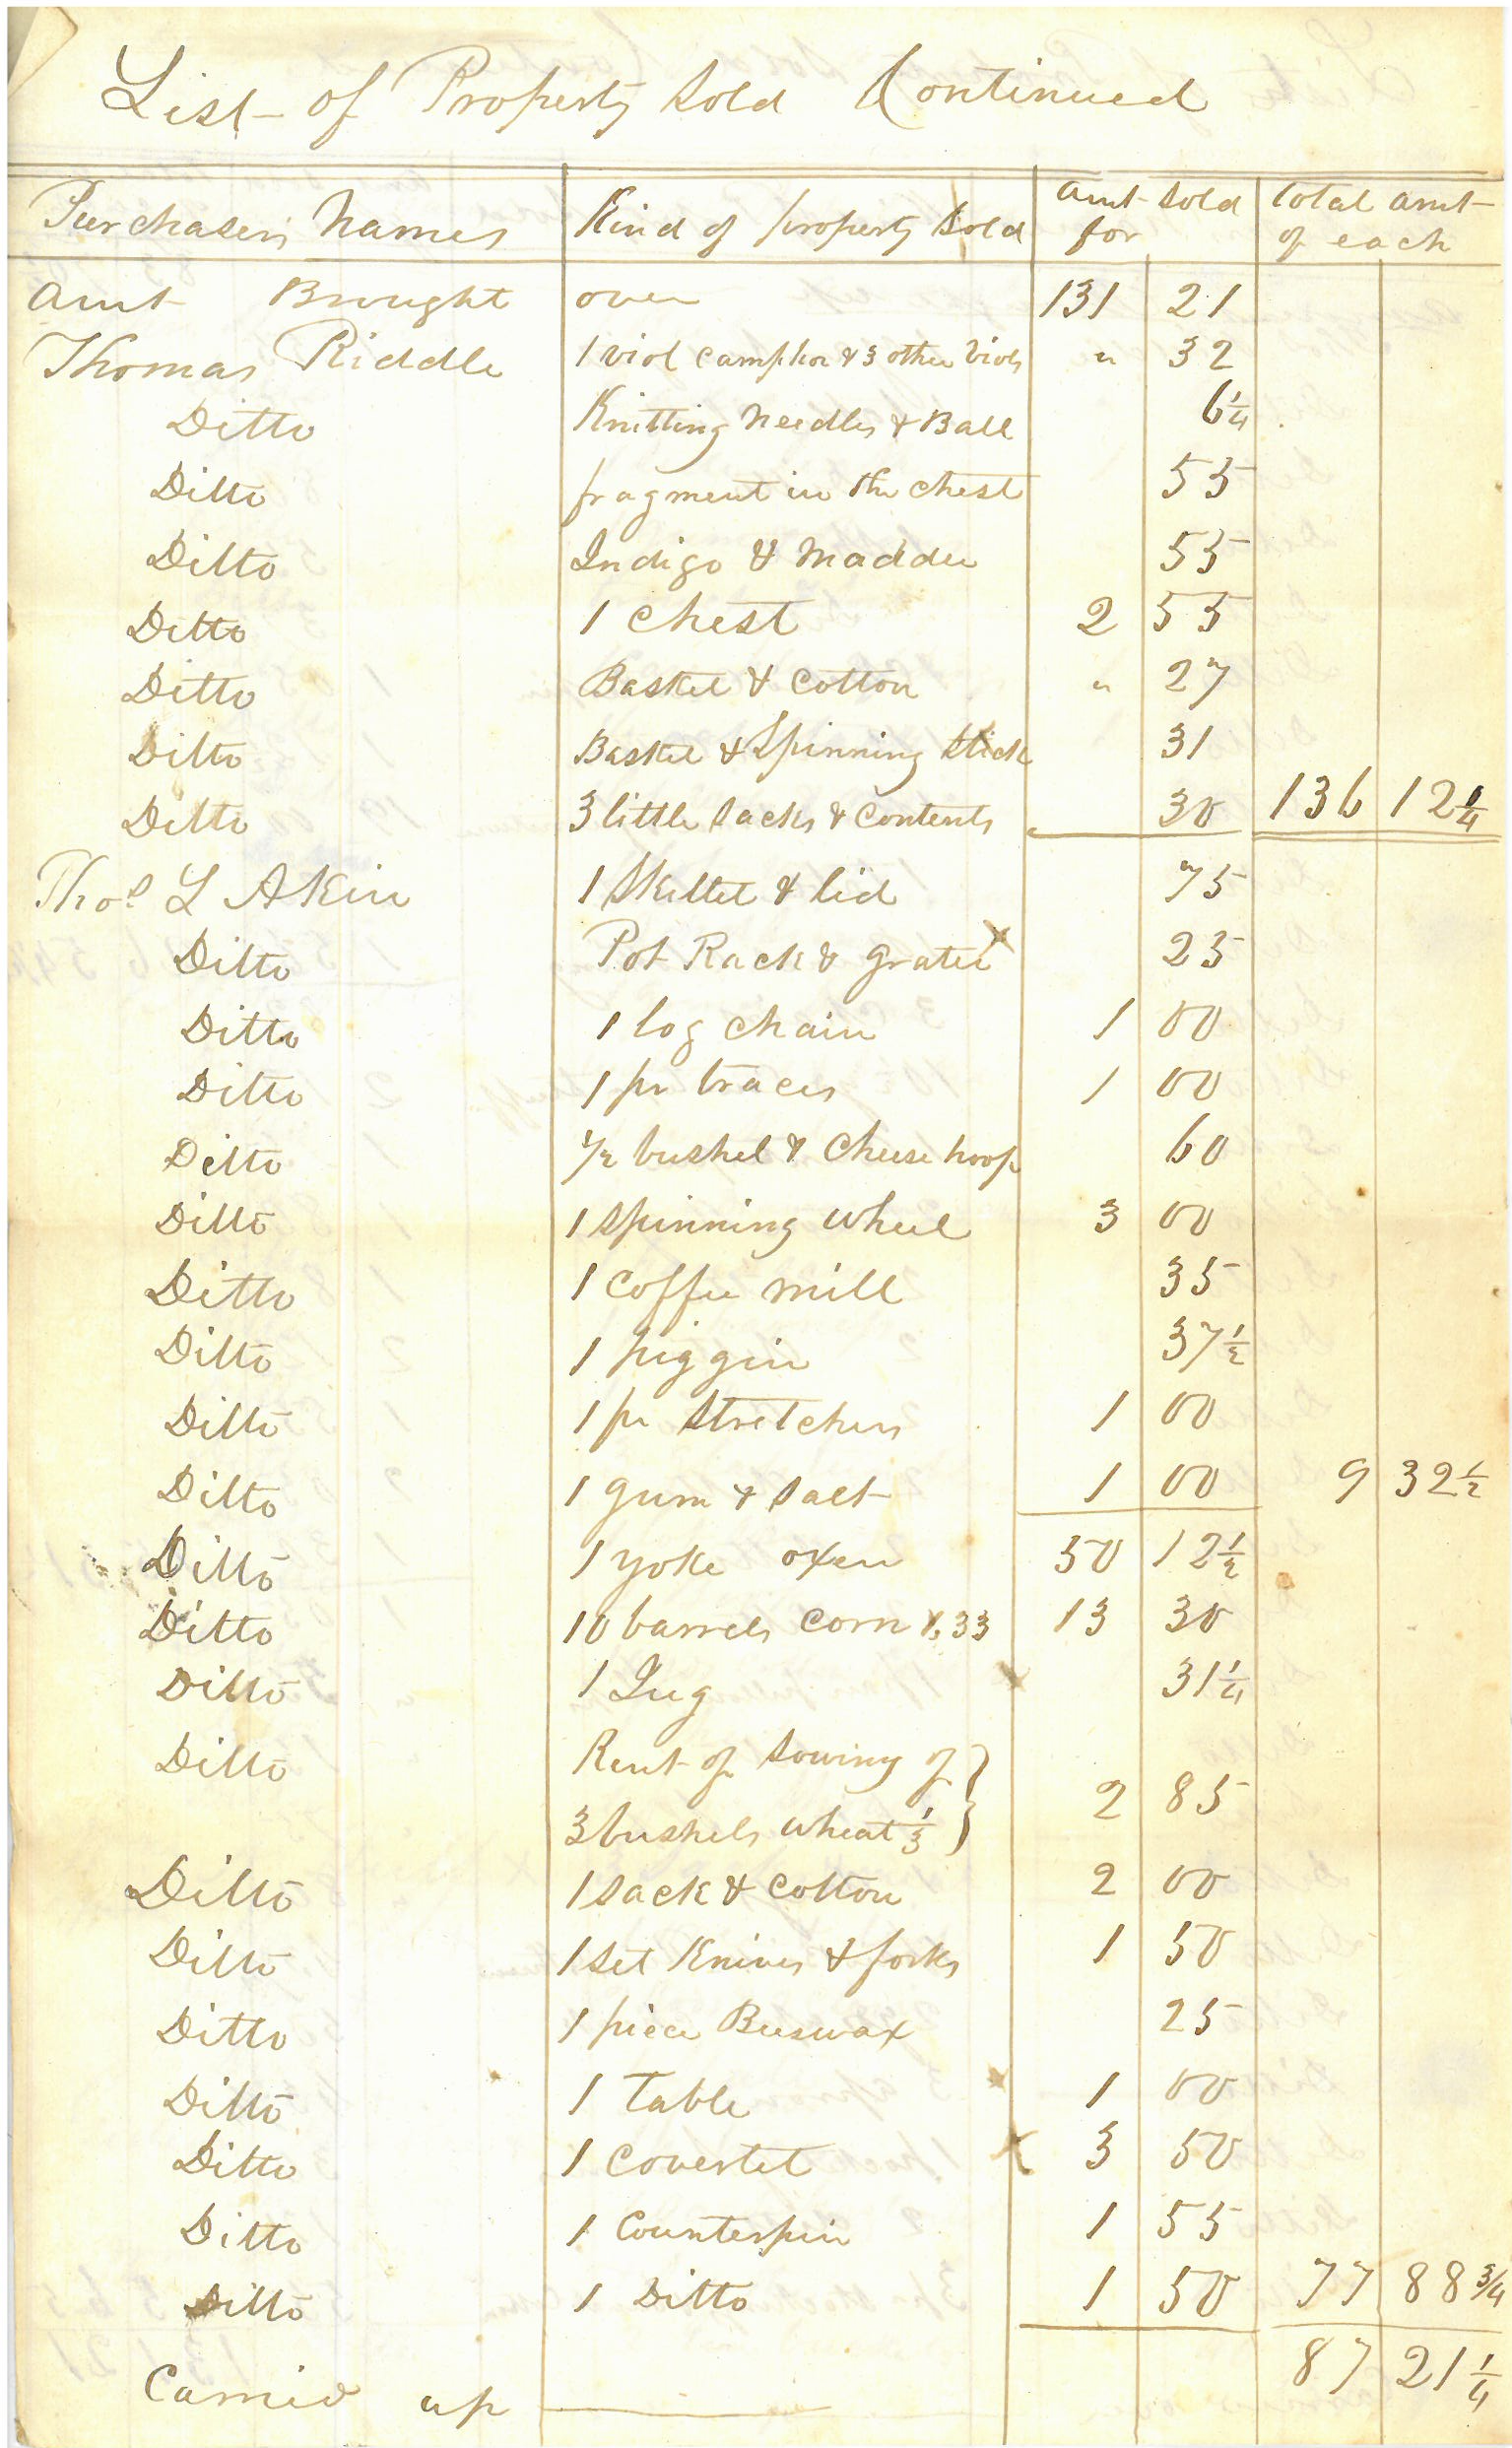 List of Property Sold Continued
Purchasers Names Kind of property Sold amt Sold for total amt of each
Amt Brought over 131 21
Thomas Riddle 1 viol camphor & 3 other viols " 32
Ditto Knitting Needles & Ball 6 1/4
Ditto fragment in the chest 55
Ditto Indigo & Madder 55
Ditto 1 Chest 2 55
Ditto Basket & Cotton " 27
Ditto Basket & Spinning Stick 31
Ditto 3 little Sacks & Contents 30 136 12 1/4
Thos L Akin 1 Skillet & lid 75
Ditto Pot Rack & grater x 25
Ditto 1 log chain 1 00
Ditto 1 pr traces 1 00
Ditto 1/2 bushel & Cheese hoop 60
Ditto 1 Spinning wheel 3 00
Ditto 1 Coffee mill 35
Ditto 1 piggin 37 1/2
Ditto 1 pr Stretchers 1 00
Ditto 1 gum & Salt 1 00 9 32 1/2
Ditto 1 yoke oxen 50 12 1/2
Ditto 10 barrels Corn 1.33 13 30
Ditto 1 Jug x 31 1/4
Ditto Rent of Sowing of
3 bushels wheat 1/3 2 85
Ditto 1 Sack & Cotton 2 00
Ditto 1 Set Knives & forks 1 50
Ditto 1 piece Beeswax 25
Ditto 1 Table x 1 00
Ditto 1 Coverlet x 3 50
Ditto 1 Counterpin 1 55
Ditto 1 Ditto 1 50 77 88 3/4
Carried up 87 21 1/4